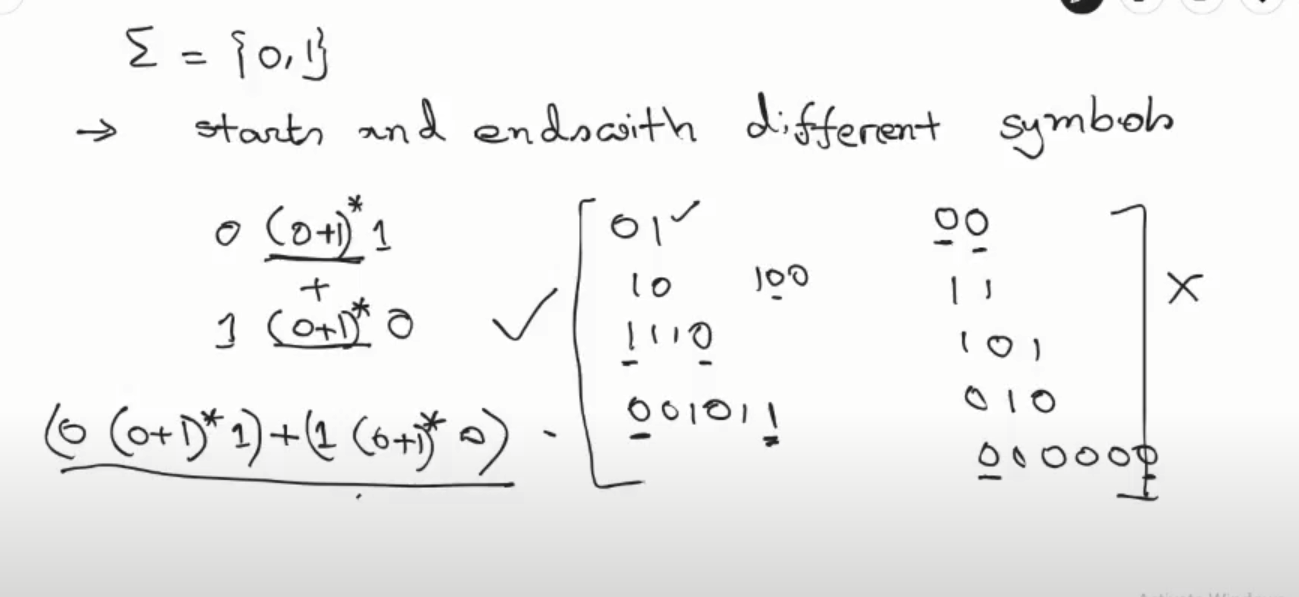 Σ = {0,1}
→ starts and endswith different symbols
0 (0+1)* 1
+
1 (0+1)* 0
(0 (0+1)* 1)+(1 (0+1)* 0)
01 ✓
10 100
1110
001011
✓
00
11
101
010
010000
X